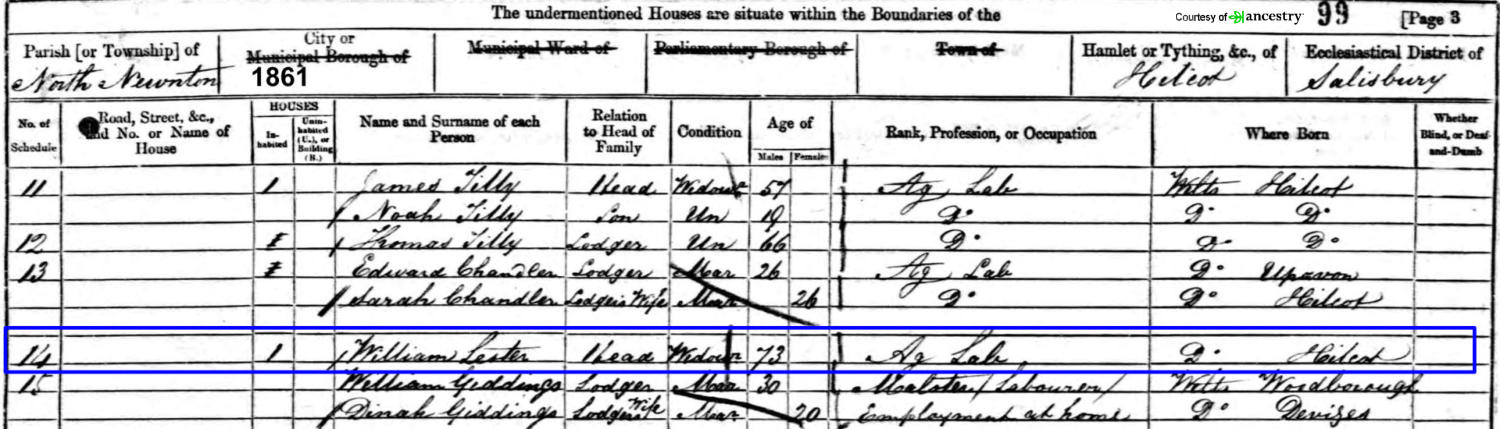 The undermentioned Houses are situate within the Boundaries of the
Courtesy of ancestry
99 [Page 3
Parish [or Township] of North Newnton
City or Municipal Borough of
1861
Municipal Ward of
Parliamentary Borough of
Town of
Hamlet or Tything, &c., of Hilcot
Ecclesiastical District of Salisbury
No. of Schedule
Road, Street, &c., and No. or Name of House
HOUSES
In-habited
Unin-habited (U.), or Building (B.)
Name and Surname of each Person
Relation to Head of Family
Condition
Age of
Males Females
Rank, Profession, or Occupation
Where Born
Whether Blind, or Deaf-and-Dumb
11 1 James Tilly Head Widowr 57 Ag Lab Wilts Hilcot
Noah Tilly Son Un 19 Do Do Do
12 Thomas Tilly Lodger Un 66 Do Do Do
13 Edward Chandler Lodger Mar 26 Ag Lab Do Upavon
Sarah Chandler Lodgers Wife Mar 26 Do Do Hilcot
14 1 William Lester Head Widowr 73 Ag Lab Do Hilcot
15 William Giddings Lodger Mar 30 Malster/Labourer/ Wilts Woodborough
Dinah Giddings Lodgers Wife Mar 20 Employment at home Do Devizes